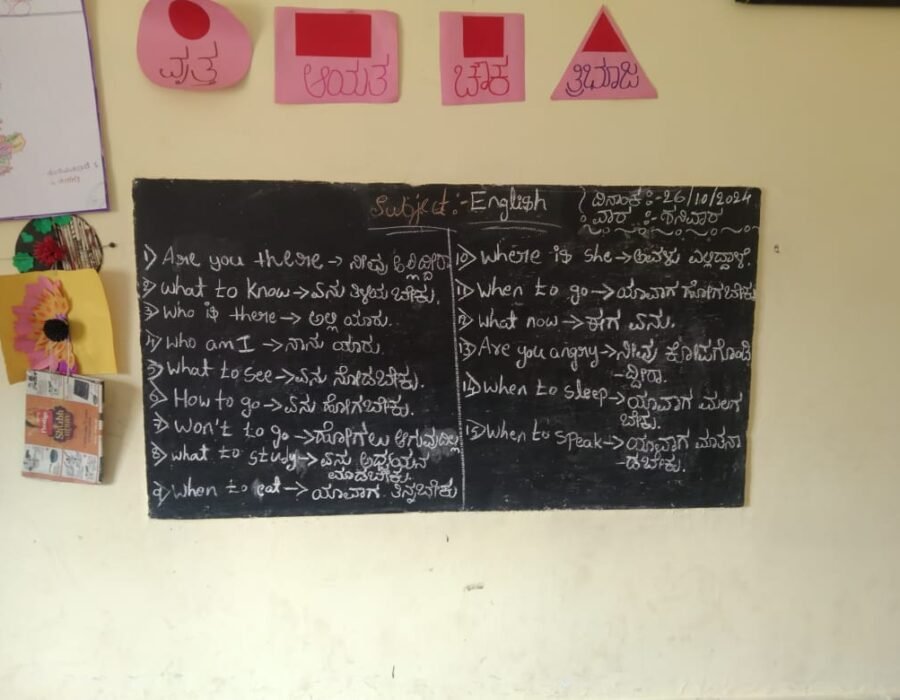 ವೃತ್ತ
ಆಯತ
ಚೌಕ
ತ್ರಿಭುಜ
Subject:- English
ದಿನಾಂಕ :-26/10/2024
ವಾರ :-ಶನಿವಾರ
1) Are you there → ನೀವು ಅಲ್ಲಿದ್ದೀರಾ
2) what to know → ಏನು ತಿಳಿಯ ಬೇಕು.
3) Who is there → ಅಲ್ಲಿ ಯಾರು.
4) Who am I → ನಾನು ಯಾರು.
5) what to see → ಏನು ನೋಡಬೇಕು.
6) How to go → ಏನು ಹೋಗಬೇಕು.
7) won't to go → ಹೋಗಲು ಆಗುವುದಿಲ್ಲ
8) what to study → ಏನು ಅಧ್ಯಯನ
ಮಾಡಬೇಕು.
9) When to eat → ಯಾವಾಗ ತಿನ್ನಬೇಕು
10) where is she → ಅವಳು ಎಲ್ಲಿದ್ದಾಳೆ.
11) When to go → ಯಾವಾಗ ಹೋಗಬೇಕು
12) what now → ಈಗ ಏನು.
13) Are you angry → ನೀವು ಕೋಪಗೊಂಡಿ
-ದ್ದೀರಾ.
14) When to sleep → ಯಾವಾಗ ಮಲಗ
ಬೇಕು.
15) When to speak → ಯಾವಾಗ ಮಾತನಾ
-ಡಬೇಕು.